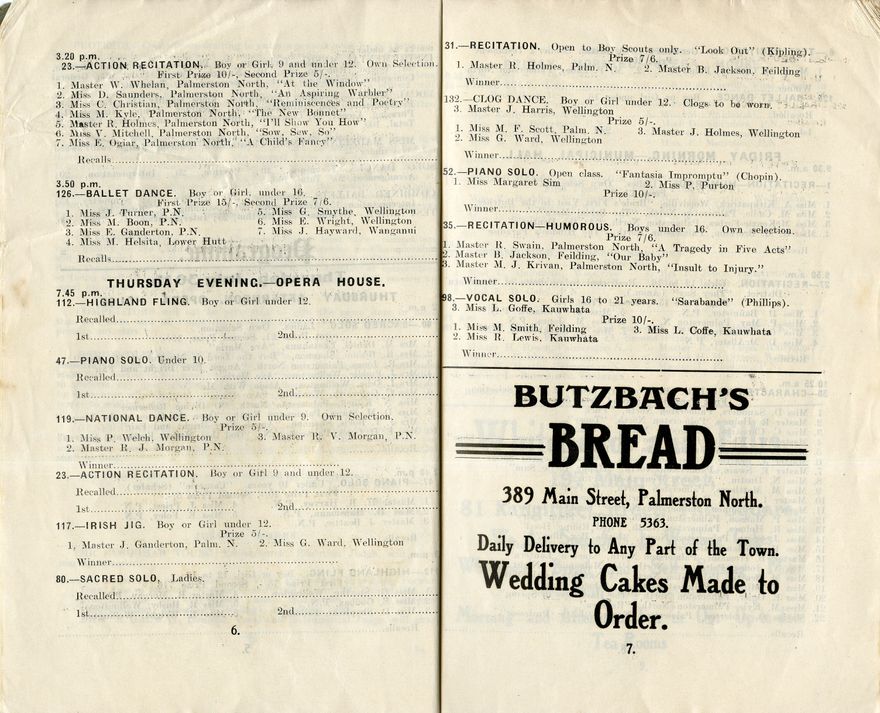 3.20 p.m.
23.—ACTION RECITATION. Boy or Girl, 9 and under 12. Own Selection.
First Prize 10/-, Second Prize 5/-.
1. Master W. Whelan, Palmerston North, "At the Window"
2. Miss D. Saunders, Palmerston North, "An Aspiring Warbler"
3. Miss C. Christian, Palmerston North, "Reminiscences and Poetry"
4. Miss M. Kyle, Palmerston North, "The New Bonnet"
5. Master R. Holmes, Palmerston North, "I'll Show You How"
6. Miss V. Mitchell, Palmerston North, "Sow, Sew, So"
7. Miss E. Ogiar, Palmerston North, "A Child's Fancy"
Recalls
3.50 p.m.
126.—BALLET DANCE. Boy or Girl, under 16.
First Prize 15/-, Second Prize 7/6.
1. Miss J. Turner, P.N. 5. Miss G. Smythe, Wellington
2. Miss M. Boon, P.N. 6. Miss E. Wright, Wellington
3. Miss E. Ganderton, P.N. 7. Miss J. Hayward, Wanganui
4. Miss M. Helsita, Lower Hutt
Recalls
THURSDAY EVENING.—OPERA HOUSE.
7.45 p.m.
112.—HIGHLAND FLING. Boy or Girl under 12.
Recalled
1st 2nd
47.—PIANO SOLO. Under 10.
Recalled
1st 2nd
119.—NATIONAL DANCE. Boy or Girl under 9. Own Selection.
Prize 5/-.
1. Miss P. Welch, Wellington 3. Master R. V. Morgan, P.N.
2. Master R. J. Morgan, P.N.
Winner
23.—ACTION RECITATION. Boy or Girl 9 and under 12.
Recalled
1st 2nd
117.—IRISH JIG. Boy or Girl under 12.
Prize 5/-.
1. Master J. Ganderton, Palm. N. 2. Miss G. Ward, Wellington
Winner
80.—SACRED SOLO, Ladies.
Recalled
1st 2nd
6.
31.—RECITATION. Open to Boy Scouts only. "Look Out" (Kipling).
Prize 7/6.
1. Master R. Holmes, Palm. N. 2. Master B. Jackson, Feilding
Winner
132.—CLOG DANCE. Boy or Girl under 12. Clogs to be worn.
3. Master J. Harris, Wellington
Prize 5/-.
1. Miss M. F. Scott, Palm. N. 3. Master J. Holmes, Wellington
2. Miss G. Ward, Wellington
Winner
52.—PIANO SOLO. Open class. "Fantasia Impromptu" (Chopin).
1. Miss Margaret Sim 2. Miss P. Purton
Prize 10/-.
Winner
35.—RECITATION—HUMOROUS. Boys under 16. Own selection.
Prize 7/6.
1. Master R. Swain, Palmerston North, "A Tragedy in Five Acts"
2. Master B. Jackson, Feilding, "Our Baby"
3. Master M. J. Krivan, Palmerston North, "Insult to Injury."
Winner
98.—VOCAL SOLO. Girls 16 to 21 years. "Sarabande" (Phillips).
3. Miss L. Goffe, Kauwhata
Prize 10/-.
1. Miss M. Smith, Feilding 3. Miss L. Coffe, Kauwhata
2. Miss R. Lewis, Kauwhata
Winner
BUTZBACH'S
BREAD
389 Main Street, Palmerston North.
PHONE 5363.
Daily Delivery to Any Part of the Town.
Wedding Cakes Made to
Order.
7.